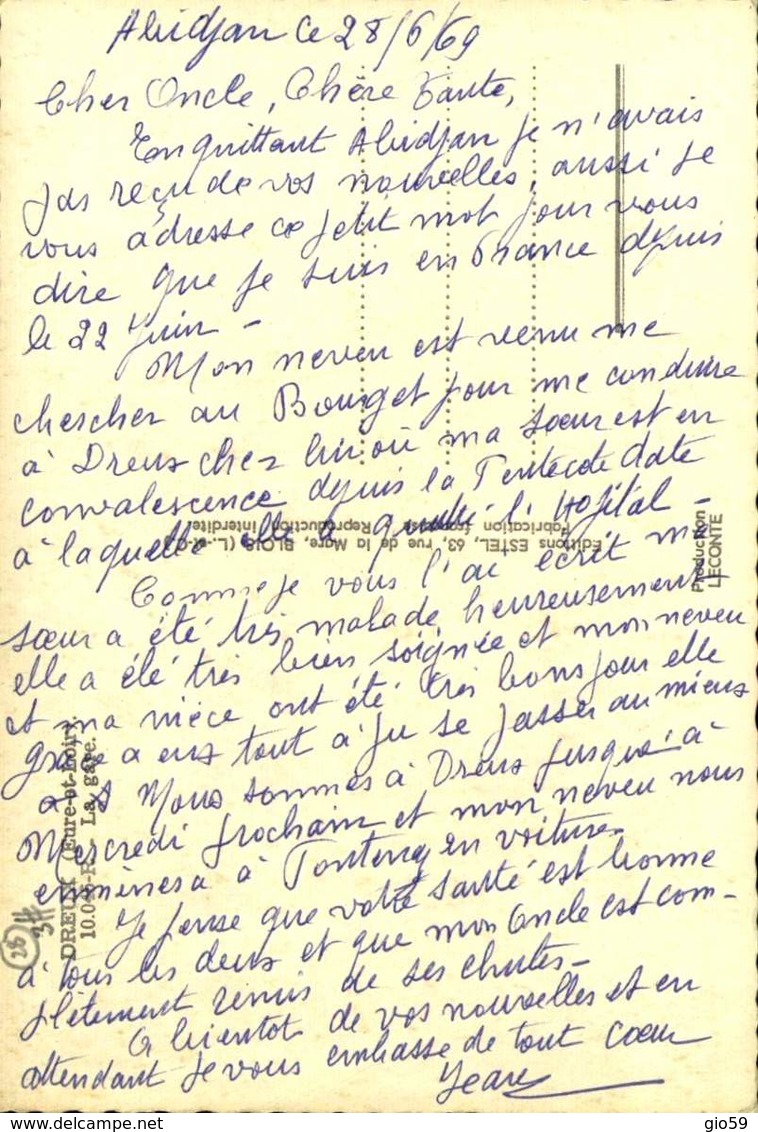 Abidjan le 28/6/69
Cher Oncle, Chère Tante,
En quittant Abidjan je n'avais
pas reçu de vos nouvelles, aussi je
vous adresse ce petit mot pour vous
dire que je suis en France depuis
le 22 Juin -
Mon neveu est venu me
chercher au Bourget pour me conduire
à Dreux chez lui où ma soeur est en
convalescence depuis la Pentecote date
à laquelle elle a quitté l'Hopital -
Comme je vous l'ai écrit ma
soeur a été très malade heureusement
elle a été très bien soignée et mon neveu
et ma nièce ont été très bons pour elle
grace a eux tout a pu se passer au mieux
Nous sommes à Dreux jusqu'à
Mercredi prochain et mon neveu nous
emmènera à en voiture.
Je pense que votre santé est bonne
à tous les deux et que mon Oncle est com-
plètement remis de ses chutes -
A bientot de vos nouvelles et en
attendant je vous embrasse de tout coeur
Editions ESTEL, 63, rue de la Mare, BLOIS (L.-et-C.)
Fabrication française Reproduction interdite
Production
LECONTE
DREUX (Eure-et-Loir).
La gare.
28
gio59